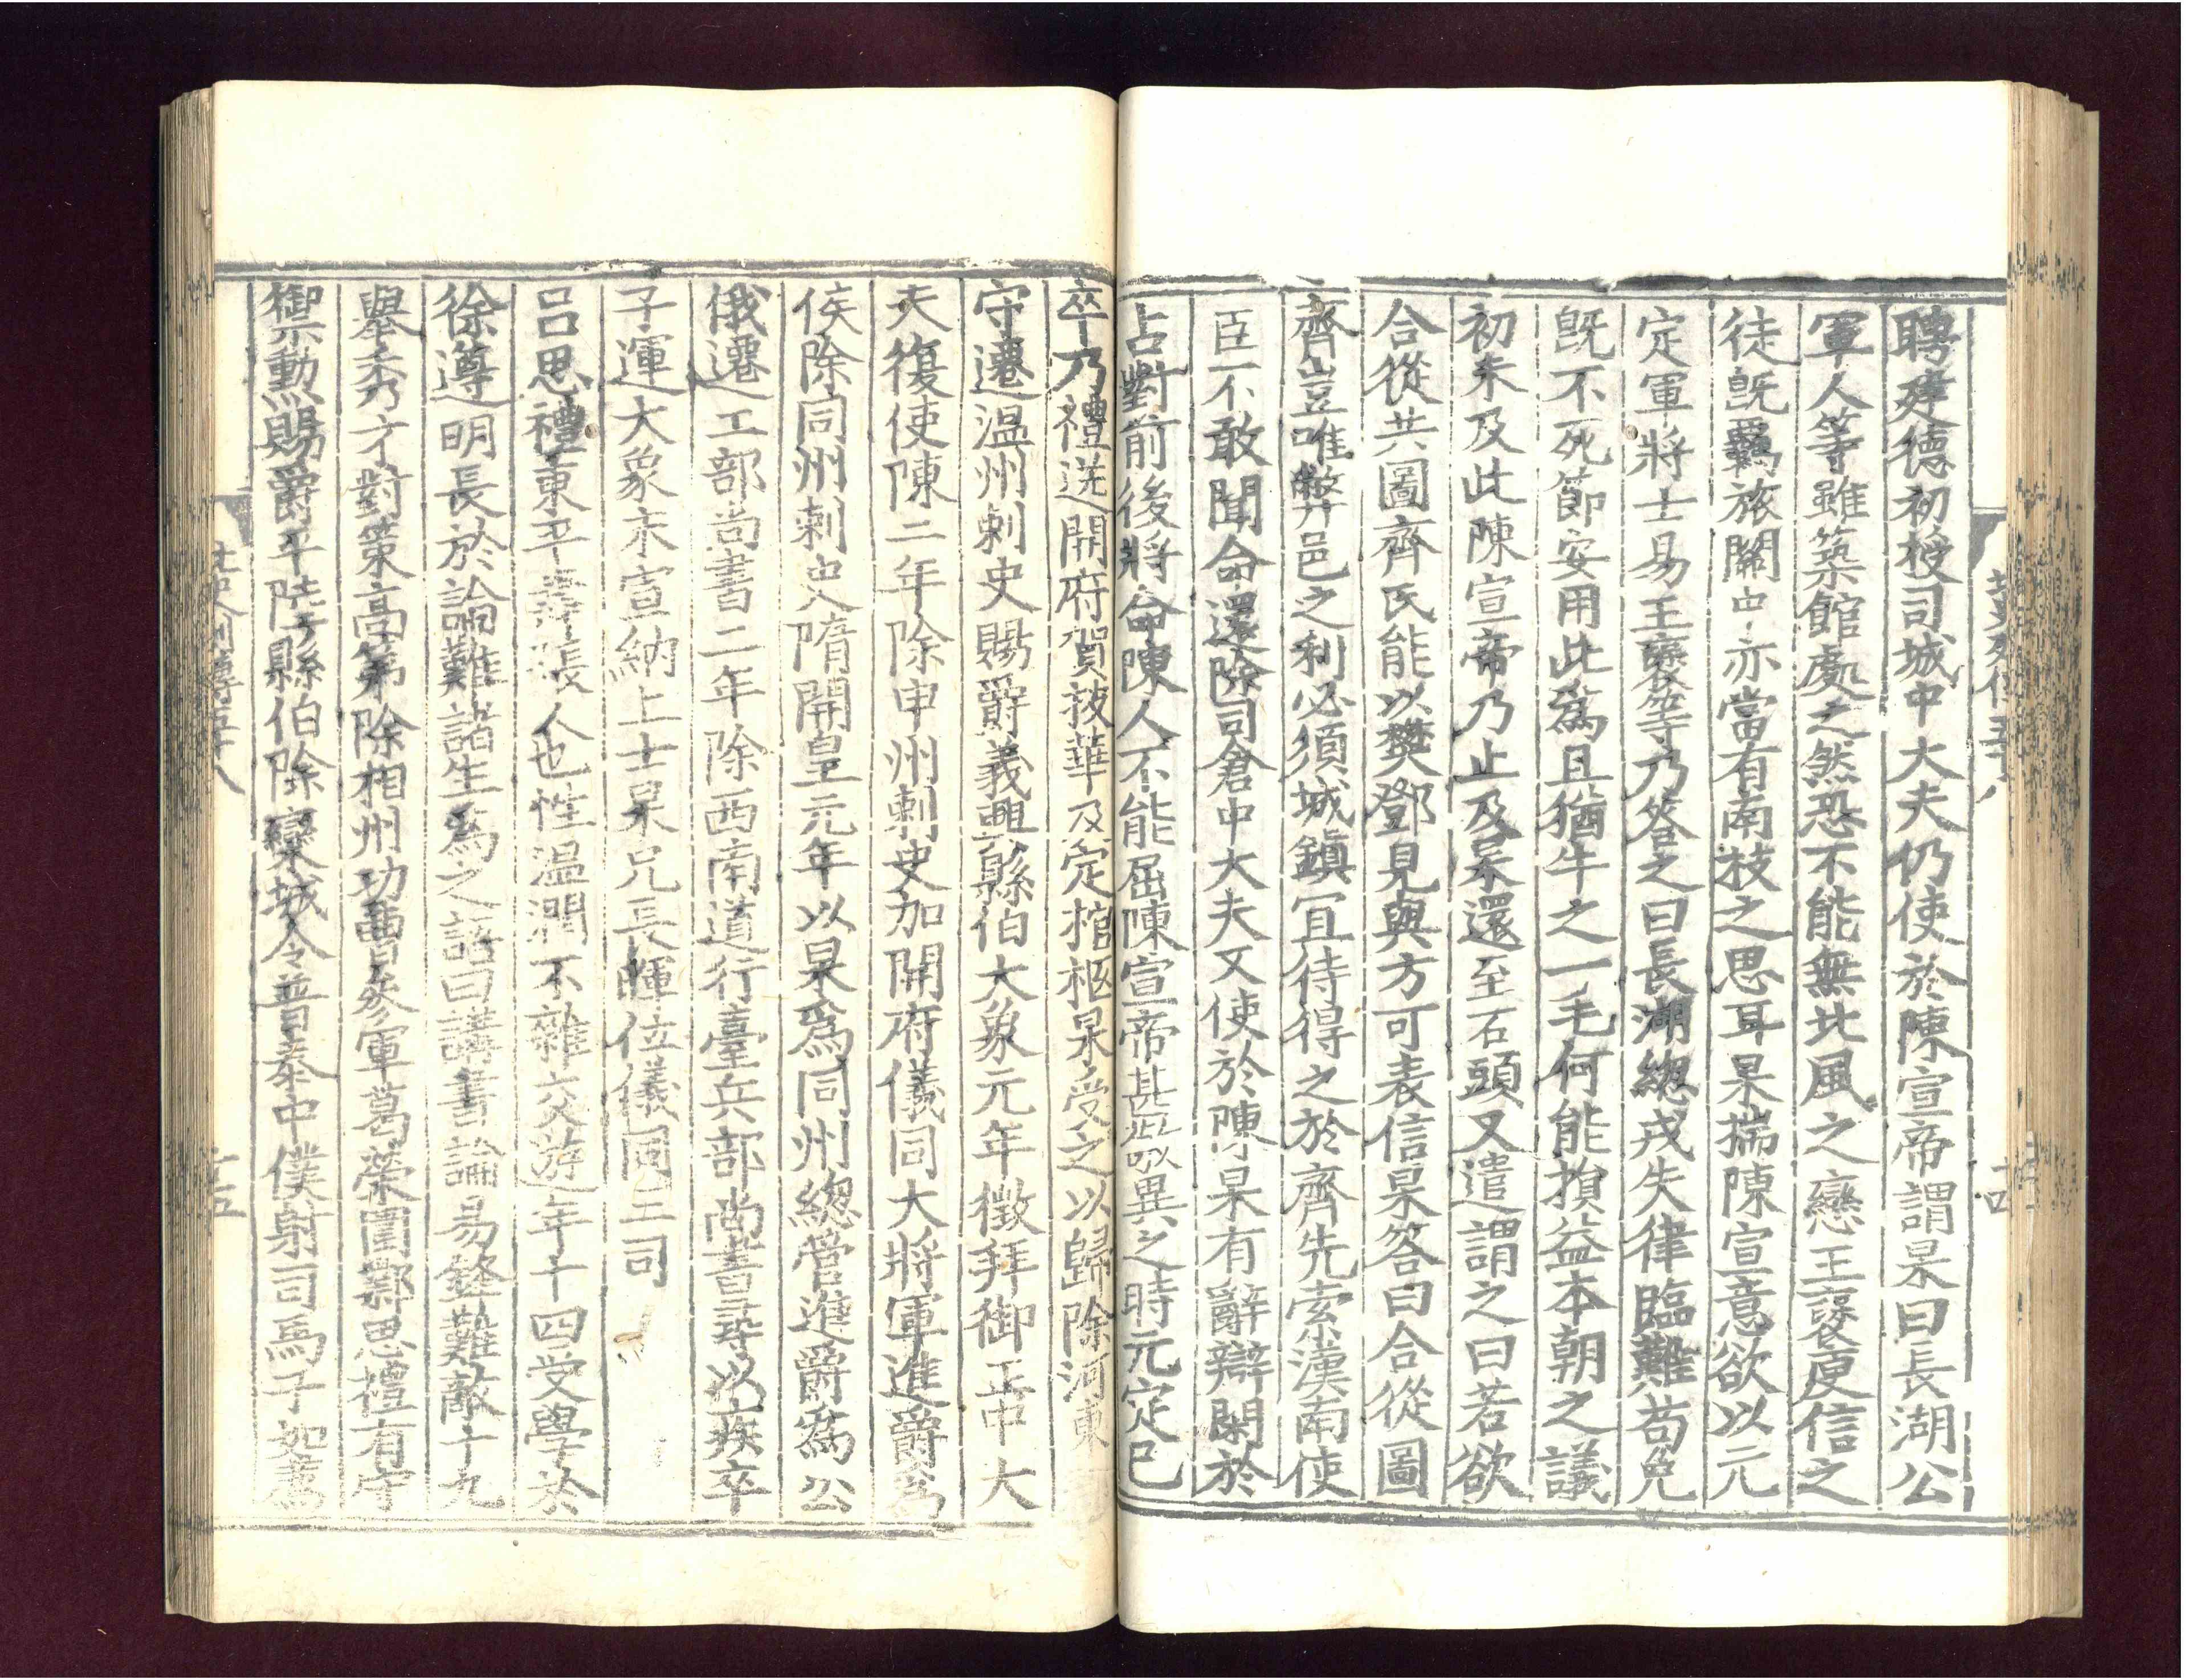 北史列傳五十八
十四
聘建德初授司城中大夫仍使於陳宣帝謂杲曰長湖公
軍人等雖築館處之然恐不能無北風之戀王襃庾信之
徒旣羇旅關中亦當有南枝之思耳杲揣陳宣意欲以元
定軍將士易王襃等乃答之曰長湖緫戎失律臨難苟免
旣不死節安用此爲且猶牛之一毛何能損益本朝之議
初未及此陳宣帝乃止及杲還至石頭又遣謂之曰若欲
合從共圖齊氏能以樊鄧見與方可表信杲答曰合從圖
齊豈唯弊邑之利必須城鎮冝待得之於齊先索漢南使
臣不敢聞命還除司倉中大夫又使於陳杲有辭辯閑於
占對前後將命陳人不能屈陳宣帝甚  異之時元定已
卒乃禮送開府賀拔華及定棺柩杲受之以歸除河東
守遷温州刺史賜爵義興縣伯大象元年徵拜御正中大
夫復使陳二年除申州刺史加開府儀同大將軍進爵爲
侯除同州刺史隋開皇元年以杲爲同州緫管進爵爲公
俄遷工部尚書二年除西南道行臺兵部尚書尋以疾卒
子運大象末宣納上士杲兄長暉位儀同三司
吕思禮東平壽張人也性温潤不雜交游年十四受學於
徐遵明長於論難諸生爲之語曰講書論易鋒難敵十九
舉秀才對策髙第除相州功曹參軍葛榮圍鄴思禮有守
禦勳賜爵平陸縣伯除欒城令普泰中僕射司馬子如薦
北史列傳五十八
十五